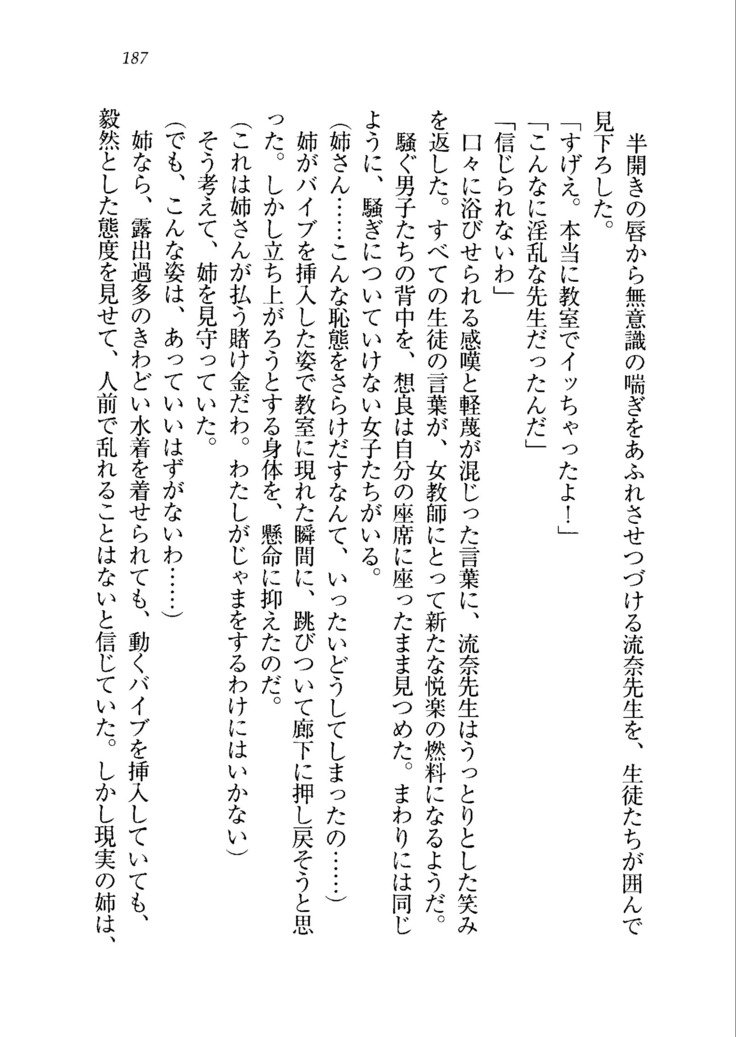 187
半開きの唇から無意識の喘ぎをあふれさせつづける流奈先生を、生徒たちが囲んで
見下ろした。
「すげえ。本当に教室でイッちゃったよ！」
「こんなに淫乱な先生だったんだ」
「信じられないわ」
口々に浴びせられる感嘆と軽蔑が混じった言葉に、流奈先生はうっとりとした笑み
を返した。すべての生徒の言葉が、女教師にとって新たな悦楽の燃料になるようだ。
騒ぐ男子たちの背中を、想良は自分の座席に座ったまま見つめた。まわりには同じ
ように、騒ぎについていけない女子たちがいる。
（姉さん……こんな恥態をさらけだすなんて、いったいどうしてしまったの……）
姉がバイブを挿入した姿で教室に現れた瞬間に、跳びついて廊下に押し戻そうと思
った。しかし立ち上がろうとする身体を、懸命に抑えたのだ。
（これは姉さんが払う賭け金だわ。わたしがじゃまをするわけにはいかない）
そう考えて、姉を見守っていた。
（でも、こんな姿は、あっていいはずがないわ……）
姉なら、露出過多のきわどい水着を着せられても、動くバイブを挿入していても、
毅然とした態度を見せて、人前で乱れることはないと信じていた。しかし現実の姉は、